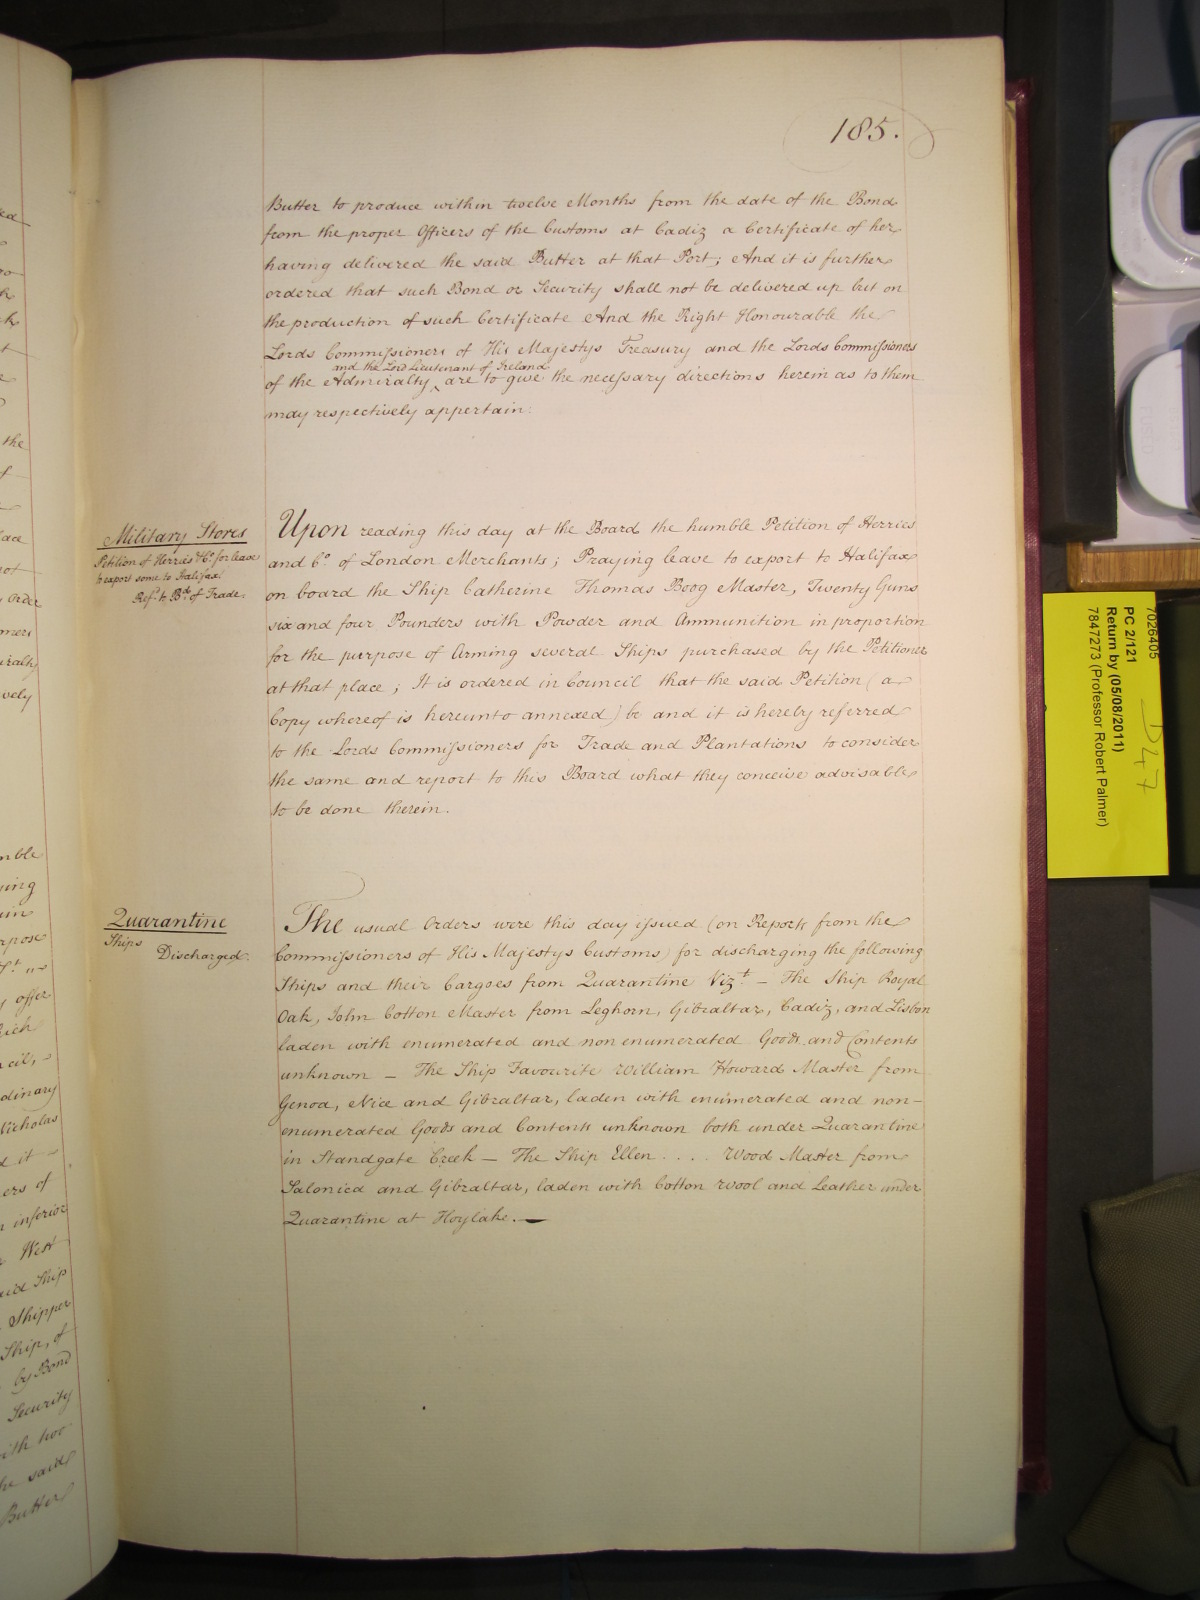 185.
Butter to produce within twelve Months from the date of the Bond
from the proper Officers of the Customs at Cadiz a Certificate of her
having delivered the said Butter at that Port; And it is further
ordered that such Bond or Security shall not be delivered up but on
the production of such Certificate And the Right Honourable the
Lords Commissioners of His Majestys Treasury and the Lords Commissioners
and the Lord Lieutenant of Ireland
of the Admiralty ‸ are to give the necessary directions herein as to them
may respectively appertain.
Military Stores
Petition of Herries & Co. for leave
to export some to Halifax
Ref.d to B.d of Trade.
Upon reading this day at the Board the humble Petition of Herries
and Co. of London Merchants; Praying leave to export to Halifax
on board the Ship Catherine Thomas Boog Master, Twenty Guns
six and four Pounders with Powder and Ammunition in proportion
for the purpose of Arming several Ships purchased by the Petitioner
at that place; It is ordered in Council that the said Petition (a
Copy whereof is hereunto annexed) be and it is hereby referred
to the Lords Commissioners for Trade and Plantations to consider
the same and report to this Board what they conceive advisable
to be done therein.
Quarantine
Ships
Discharged.
The usual Orders were this day issued (on Reports from the
Commissioners of His Majestys Customs) for discharging the following
Ships and their Cargoes from Quarantine Vizt. – The Ship Royal
Oak, John Cotton Master from Leghorn, Gibraltar, Cadiz, and Lisbon
laden with enumerated and non enumerated Goods and Contents
unknown – The Ship Favourite William Howard Master from
Genoa, Nice and Gibraltar, laden with enumerated and non-
enumerated Goods and Contents unknown both under Quarantine
in Standgate Creek – The Ship Ellen . . . . Wood Master from
Salonica and Gibraltar, laden with Cotton Wool and Leather under
Quarantine at Hoylake. —
7026405
PC 2/121
Return by (05/08/2011)
7847273 (Professor Robert Palmer)
D47
the
Order
vely
offer
dinary
Nicholas
d it
ers of
inferior
West
Ship
Shipper
Ship, of
by Bond
Security
with two
he said
Butter